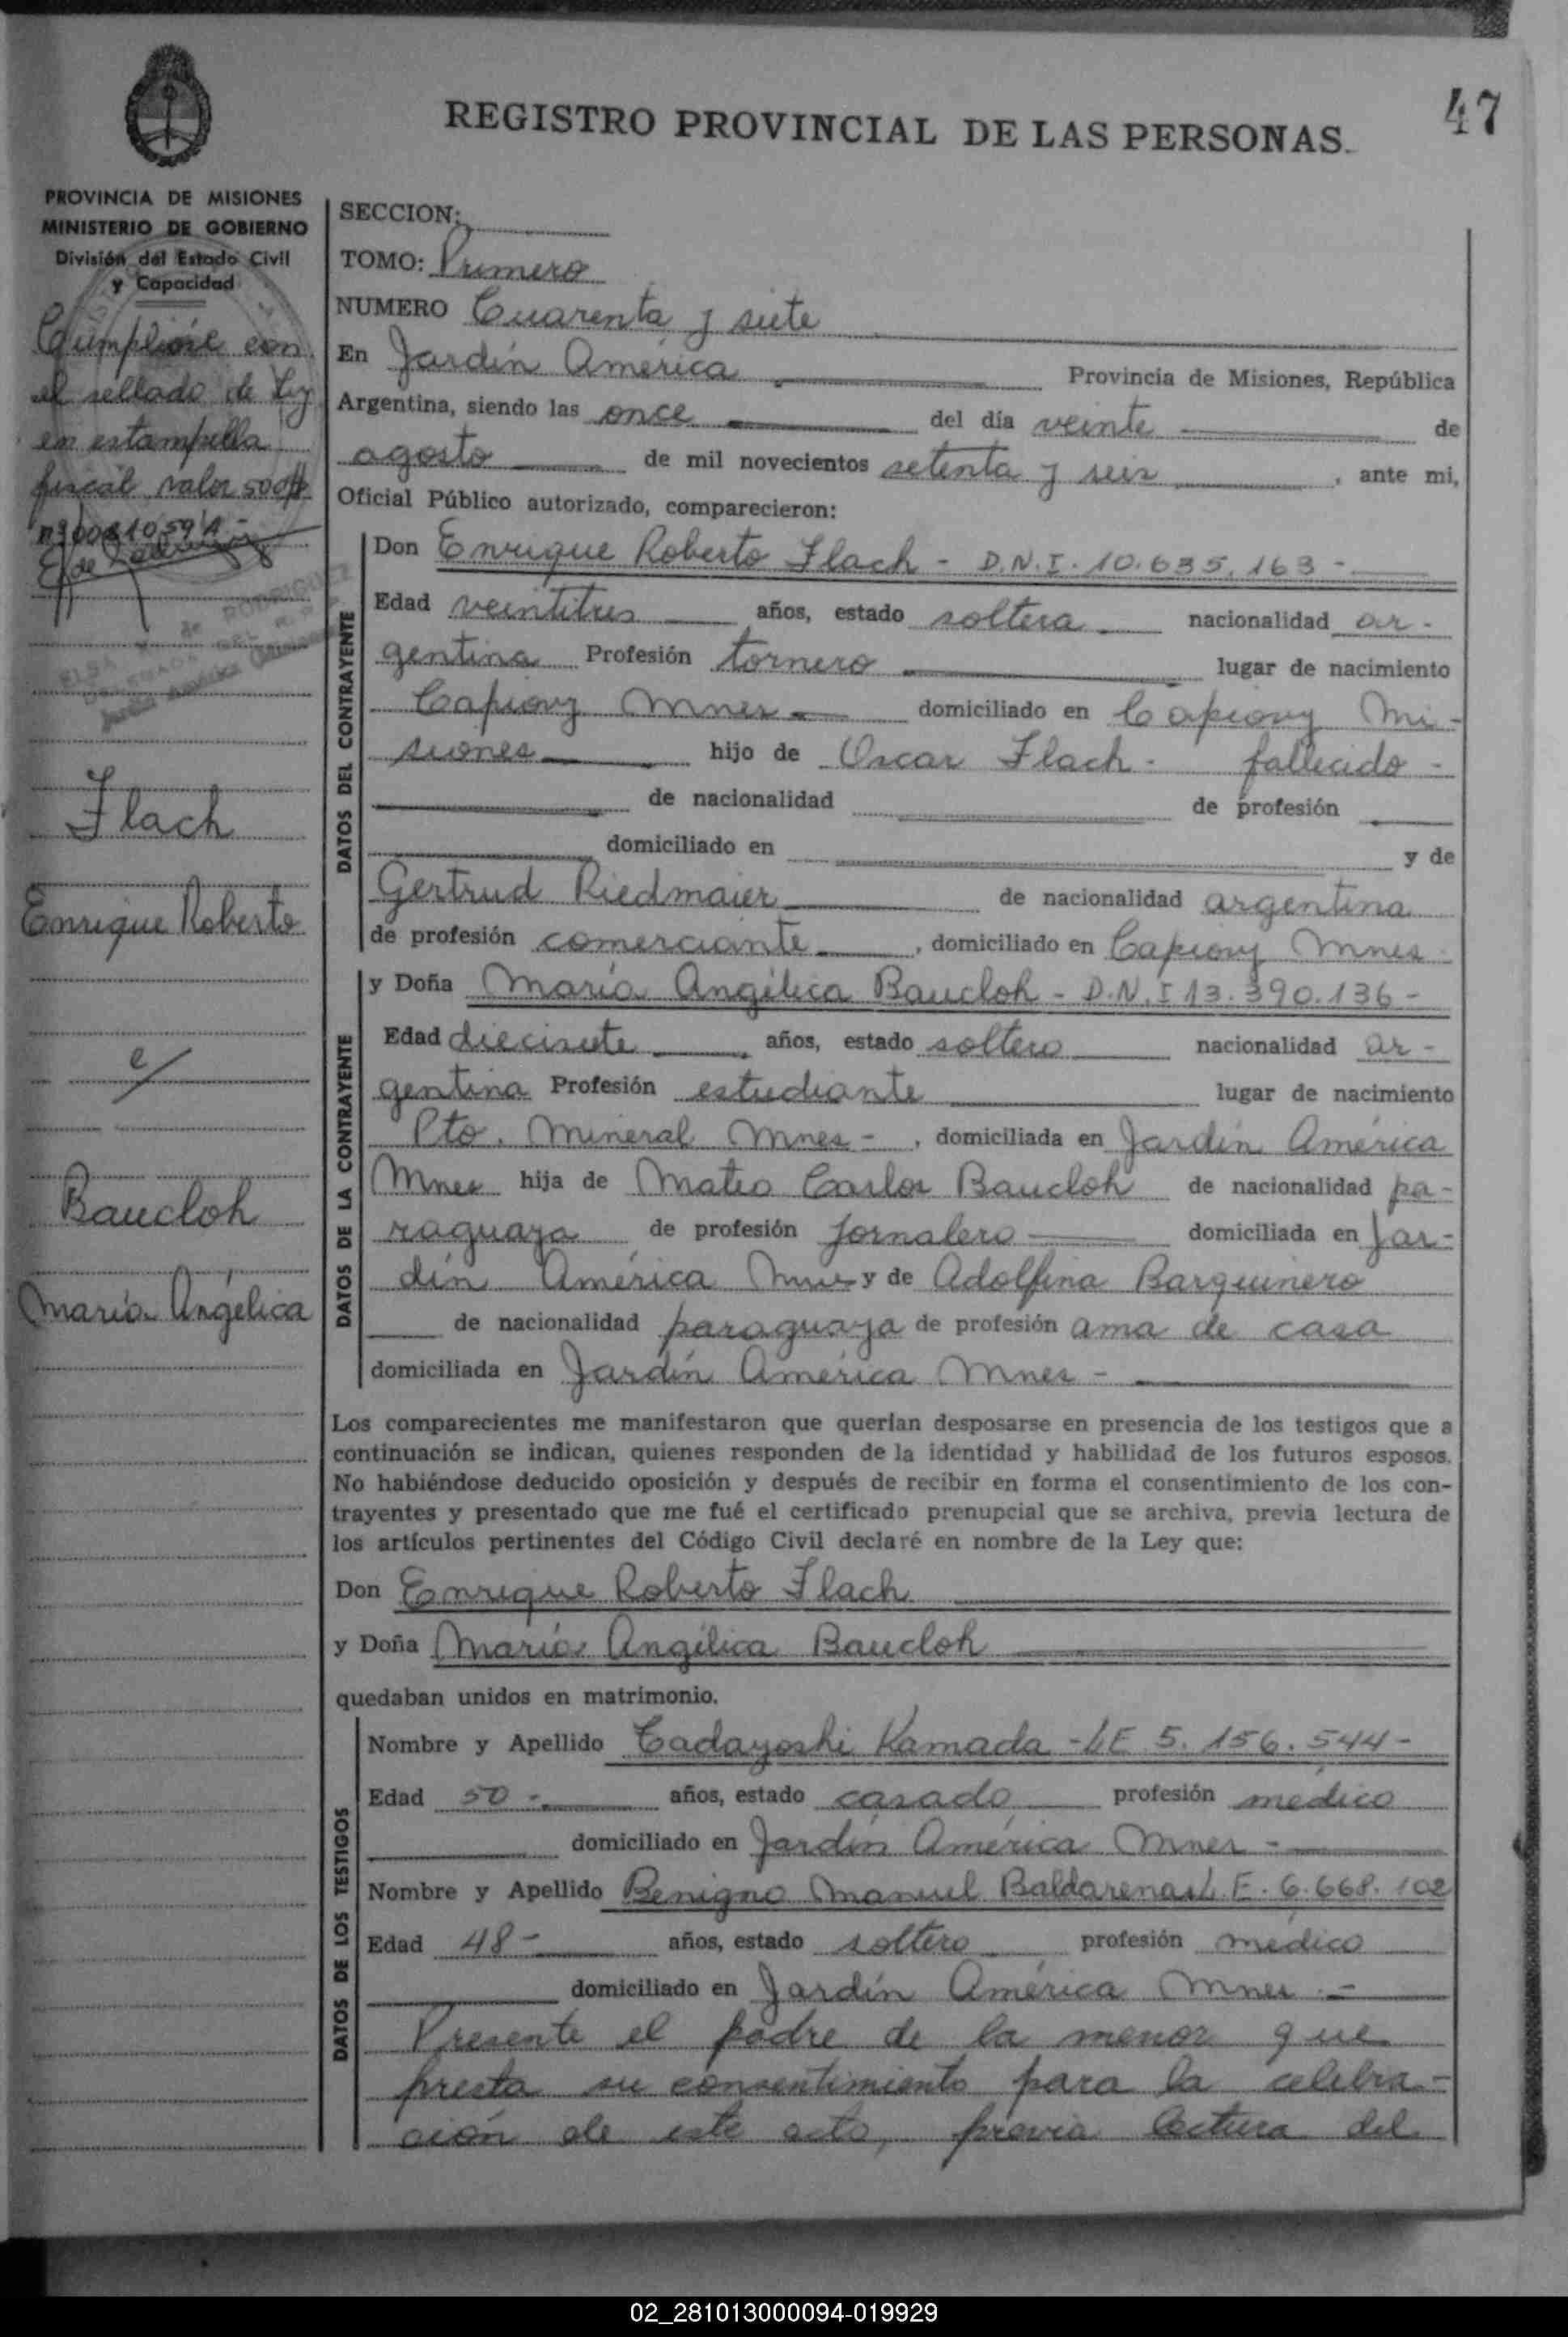 REGISTRO PROVINCIAL DE LAS PERSONAS.
47
PROVINCIA DE MISIONES
MINISTERIO DE GOBIERNO
División del Estado Civil
y Capacidad
Cumplióse con
el sellado de Ley
en estampilla
fiscal valor 500
Flach
Enrique Roberto
c/
Baucloh
María Angélica
SECCION:
TOMO: Primero
NUMERO Cuarenta y siete
En Jardín América Provincia de Misiones, República
Argentina, siendo las once del día veinte de
agosto de mil novecientos setenta y seis, ante mi,
Oficial Público autorizado, comparecieron:
DATOS DEL CONTRAYENTE
Don Enrique Roberto Flach - D.N.I. 10.635.163 -
Edad veintitres años, estado soltera nacionalidad ar-
gentina Profesión tornero lugar de nacimiento
Capiovy Mnes domiciliado en Capiovy Mi-
siones hijo de Oscar Flach - fallecido -
de nacionalidad de profesión
domiciliado en y de
Gertrud Riedmaier de nacionalidad argentina
de profesión comerciante, domiciliado en Capiovy Mnes
DATOS DE LA CONTRAYENTE
y Doña María Angélica Baucloh - D.N.I 13.390.136 -
Edad diecisiete años, estado soltero nacionalidad ar-
gentina Profesión estudiante lugar de nacimiento
Pto. Mineral Mnes -, domiciliada en Jardín América
Mnes hija de Mateo Carlos Baucloh de nacionalidad pa-
raguaya de profesión Jornalero domiciliada en Jar-
dín América Mnes y de Adolfina Barquinero
de nacionalidad paraguaya de profesión ama de casa
domiciliada en Jardín América Mnes -
Los comparecientes me manifestaron que querían desposarse en presencia de los testigos que a
continuación se indican, quienes responden de la identidad y habilidad de los futuros esposos.
No habiéndose deducido oposición y después de recibir en forma el consentimiento de los con-
trayentes y presentado que me fué el certificado prenupcial que se archiva, previa lectura de
los artículos pertinentes del Código Civil declaré en nombre de la Ley que:
Don Enrique Roberto Flach
y Doña María Angélica Baucloh
quedaban unidos en matrimonio.
DATOS DE LOS TESTIGOS
Nombre y Apellido Tadayoshi Kamada - LE 5.156.544 -
Edad 50 - años, estado casado profesión médico
domiciliado en Jardín América Mnes -
Nombre y Apellido Benigno Manuel Baldarenas L.E. 6.668.102
Edad 48 - años, estado soltero profesión médico
domiciliado en Jardín América Mnes -
Presente el padre de la menor que
presta su consentimiento para la celebra-
ción de este acto, previa lectura del
02_281013000094-019929